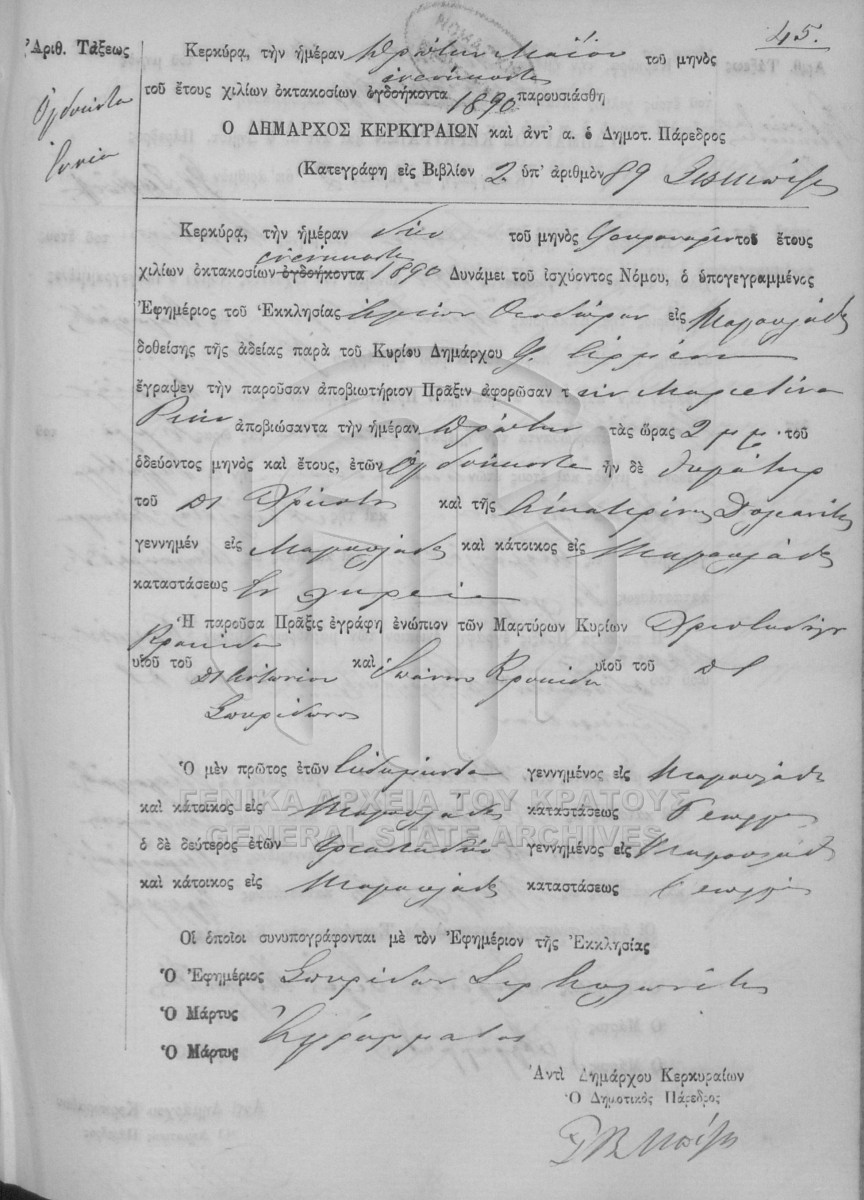 45.
Ἀριθ. Τάξεως
Ὀγδοήκοντα
ἐννέα
Κερκύρα, τὴν ἡμέραν Πρώτην Μαΐου τοῦ μηνὸς
ἐνενήκοντα
τοῦ ἔτους χιλίων ὀκτακοσίων ὀγδοήκοντα 1890 παρουσιάσθη
Ὁ ΔΗΜΑΡΧΟΣ ΚΕΡΚΥΡΑΙΩΝ καὶ ἀντ' α. ὁ Δημοτ. Πάρεδρος
(Κατεγράφη εἰς Βιβλίον 2 ὑπ' ἀριθμὸν 89
Κερκύρα, τὴν ἡμέραν τοῦ μηνὸς τοῦ ἔτους
ἐνενήκοντα
χιλίων ὀκτακοσίων ὀγδοήκοντα 1890 Δυνάμει τοῦ ἰσχύοντος Νόμου, ὁ ὑπογεγραμμένος
Ἐφημέριος τοῦ Ἐκκλησίας Ἁγίων Θεοδώρων εἰς Μαγουλάδες
δοθείσης τῆς ἀδείας παρὰ τοῦ Κυρίου Δημάρχου
ἔγραψεν τὴν παροῦσαν ἀποβιωτήριον Πρᾶξιν ἀφορῶσαν τ ην
ἀποβιώσαντα τὴν ἡμέραν Πρώτην τὰς ὥρας 2 μ.μ. τοῦ
ὁδεύοντος μηνὸς καὶ ἔτους, ἐτῶν Ὀγδοήκοντα ἦν δὲ θυγάτηρ
τοῦ Χρήστου καὶ τῆς Αἰκατερίνης
γεννημέν εἰς Μαγουλάδες καὶ κάτοικος εἰς Μαγουλάδες
καταστάσεως ἐν χηρεία
Ἡ παροῦσα Πρᾶξις ἐγράφη ἐνώπιον τῶν Μαρτύρων Κυρίων Χριστοδούλου
Κροκίδα
υἱοῦ τοῦ Ἀντωνίου καὶ Ἰωάννου Κροκίδα υἱοῦ τοῦ
Σπυρίδωνος
Ὁ μὲν πρῶτος ἐτῶν Ἑβδομήκοντα γεννημένος εἰς Μαγουλάδες
καὶ κάτοικος εἰς Μαγουλάδες καταστάσεως Γεωργὸς
ὁ δὲ δεύτερος ἐτῶν γεννημένος εἰς Μαγουλάδες
καὶ κάτοικος εἰς Μαγουλάδες καταστάσεως Γεωργὸς
ΓΕΝΙΚΑ ΑΡΧΕΙΑ ΤΟΥ ΚΡΑΤΟΥΣ
GENERAL STATE ARCHIVES
Οἱ ὁποῖοι συνυπογράφονται μὲ τὸν Ἐφημέριον τῆς Ἐκκλησίας
Ὁ Ἐφημέριος Σπυρίδων
Ὁ Μάρτυς
Ἀγράμματος
Ὁ Μάρτυς
Ἀντὶ Δημάρχου Κερκυραίων
Ὁ Δημοτικὸς Πάρεδρος